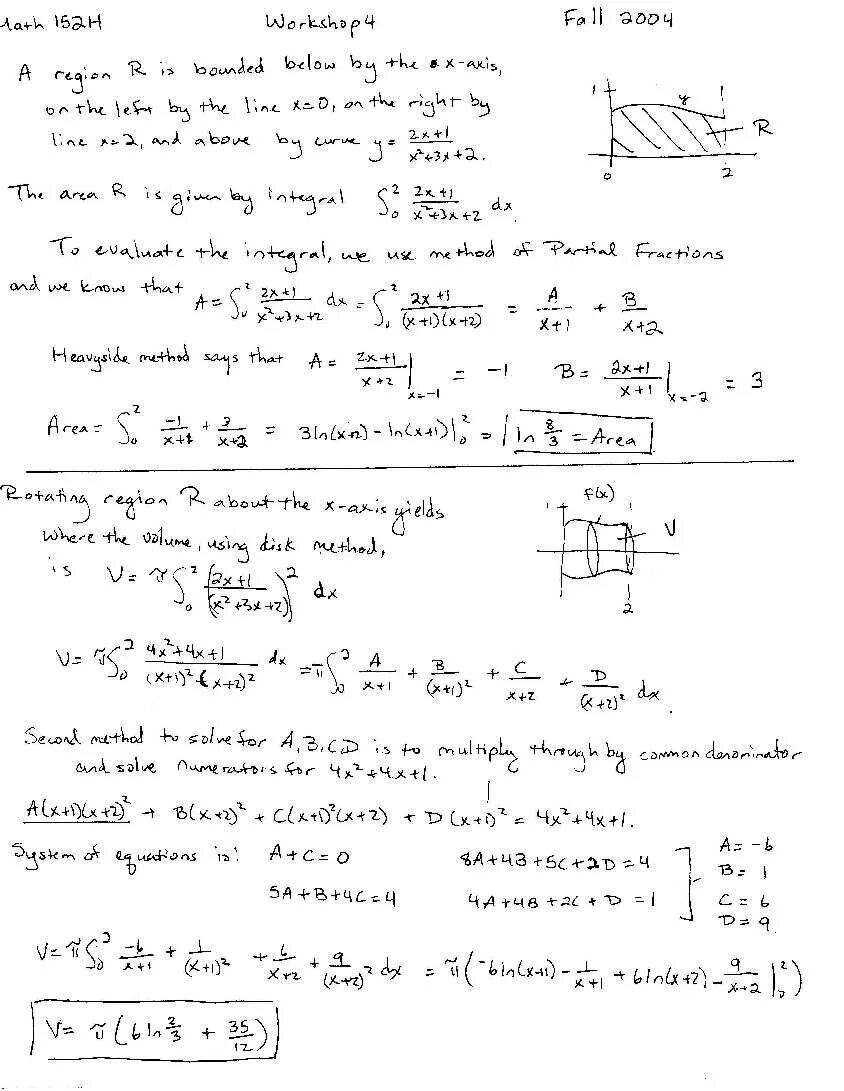 Math 152H Workshop 4 Fall 2004
A region R is bounded below by the x-axis,
on the left by the line x=0, on the right by
line x=2, and above by curve y = (2x+1)/(x²+3x+2).
1 y R
0 2
The area R is given by integral ∫₀² (2x+1)/(x²+3x+2) dx.
To evaluate the integral, we use method of Partial Fractions
and we know that A = ∫₀² (2x+1)/(x²+3x+2) dx = ∫₀² (2x+1)/((x+1)(x+2)) = A/(x+1) + B/(x+2)
Heavyside method says that A = (2x+1)/(x+2) |x=-1 = -1 B = (2x+1)/(x+1) |x=-2 = 3
Area = ∫₀² -1/(x+1) + 3/(x+2) = 3ln(x+2) - ln(x+1)|₀² = ln 8/3 = Area
Rotating region R about the x-axis yields
where the volume, using disk method,
is V = π∫₀² ((2x+1)/(x²+3x+2))² dx
f(x)
1 V
2
V = π∫₀² (4x²+4x+1)/((x+1)²(x+2)²) dx = π∫₀² A/(x+1) + B/(x+1)² + C/(x+2) + D/(x+2)² dx.
Second method to solve for A,B,C,D is to multiply through by common denominator
and solve numerators for 4x²+4x+1.
A(x+1)(x+2)² + B(x+2)² + C(x+1)²(x+2) + D(x+1)² = 4x²+4x+1.
System of equations is: A+C=0 8A+4B+5C+2D=4 A=-6
B=1
5A+B+4C=4 4A+4B+2C+D=1 C=6
D=9
V = π∫₀² -6/(x+1) + 1/(x+1)² + 6/(x+2) + 9/(x+2)² dx = π(-6ln(x+1) - 1/(x+1) + 6ln(x+2) - 9/(x+2) |₀²)
V = π(6ln 2/3 + 35/12)